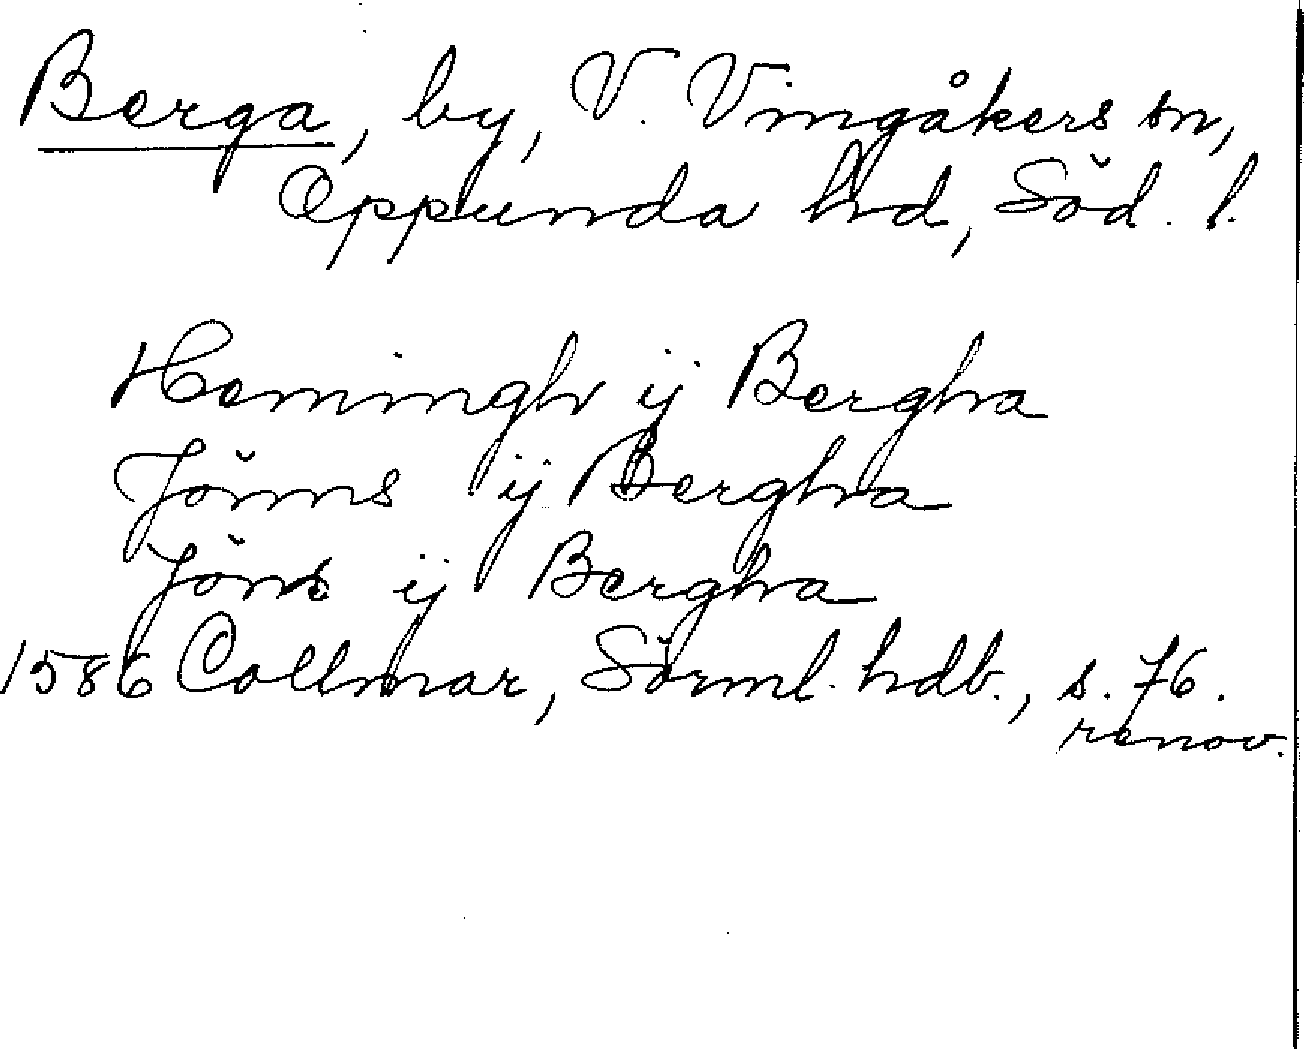 Berga, by, V. Vingåkers sn,
Oppunda hd, Söd. l.
Hemingh ij Bergha
Jönns ij Bergha
Jöns ij Bergha
1586 Collmar, Sörml. hdb., s. 76.
renov.